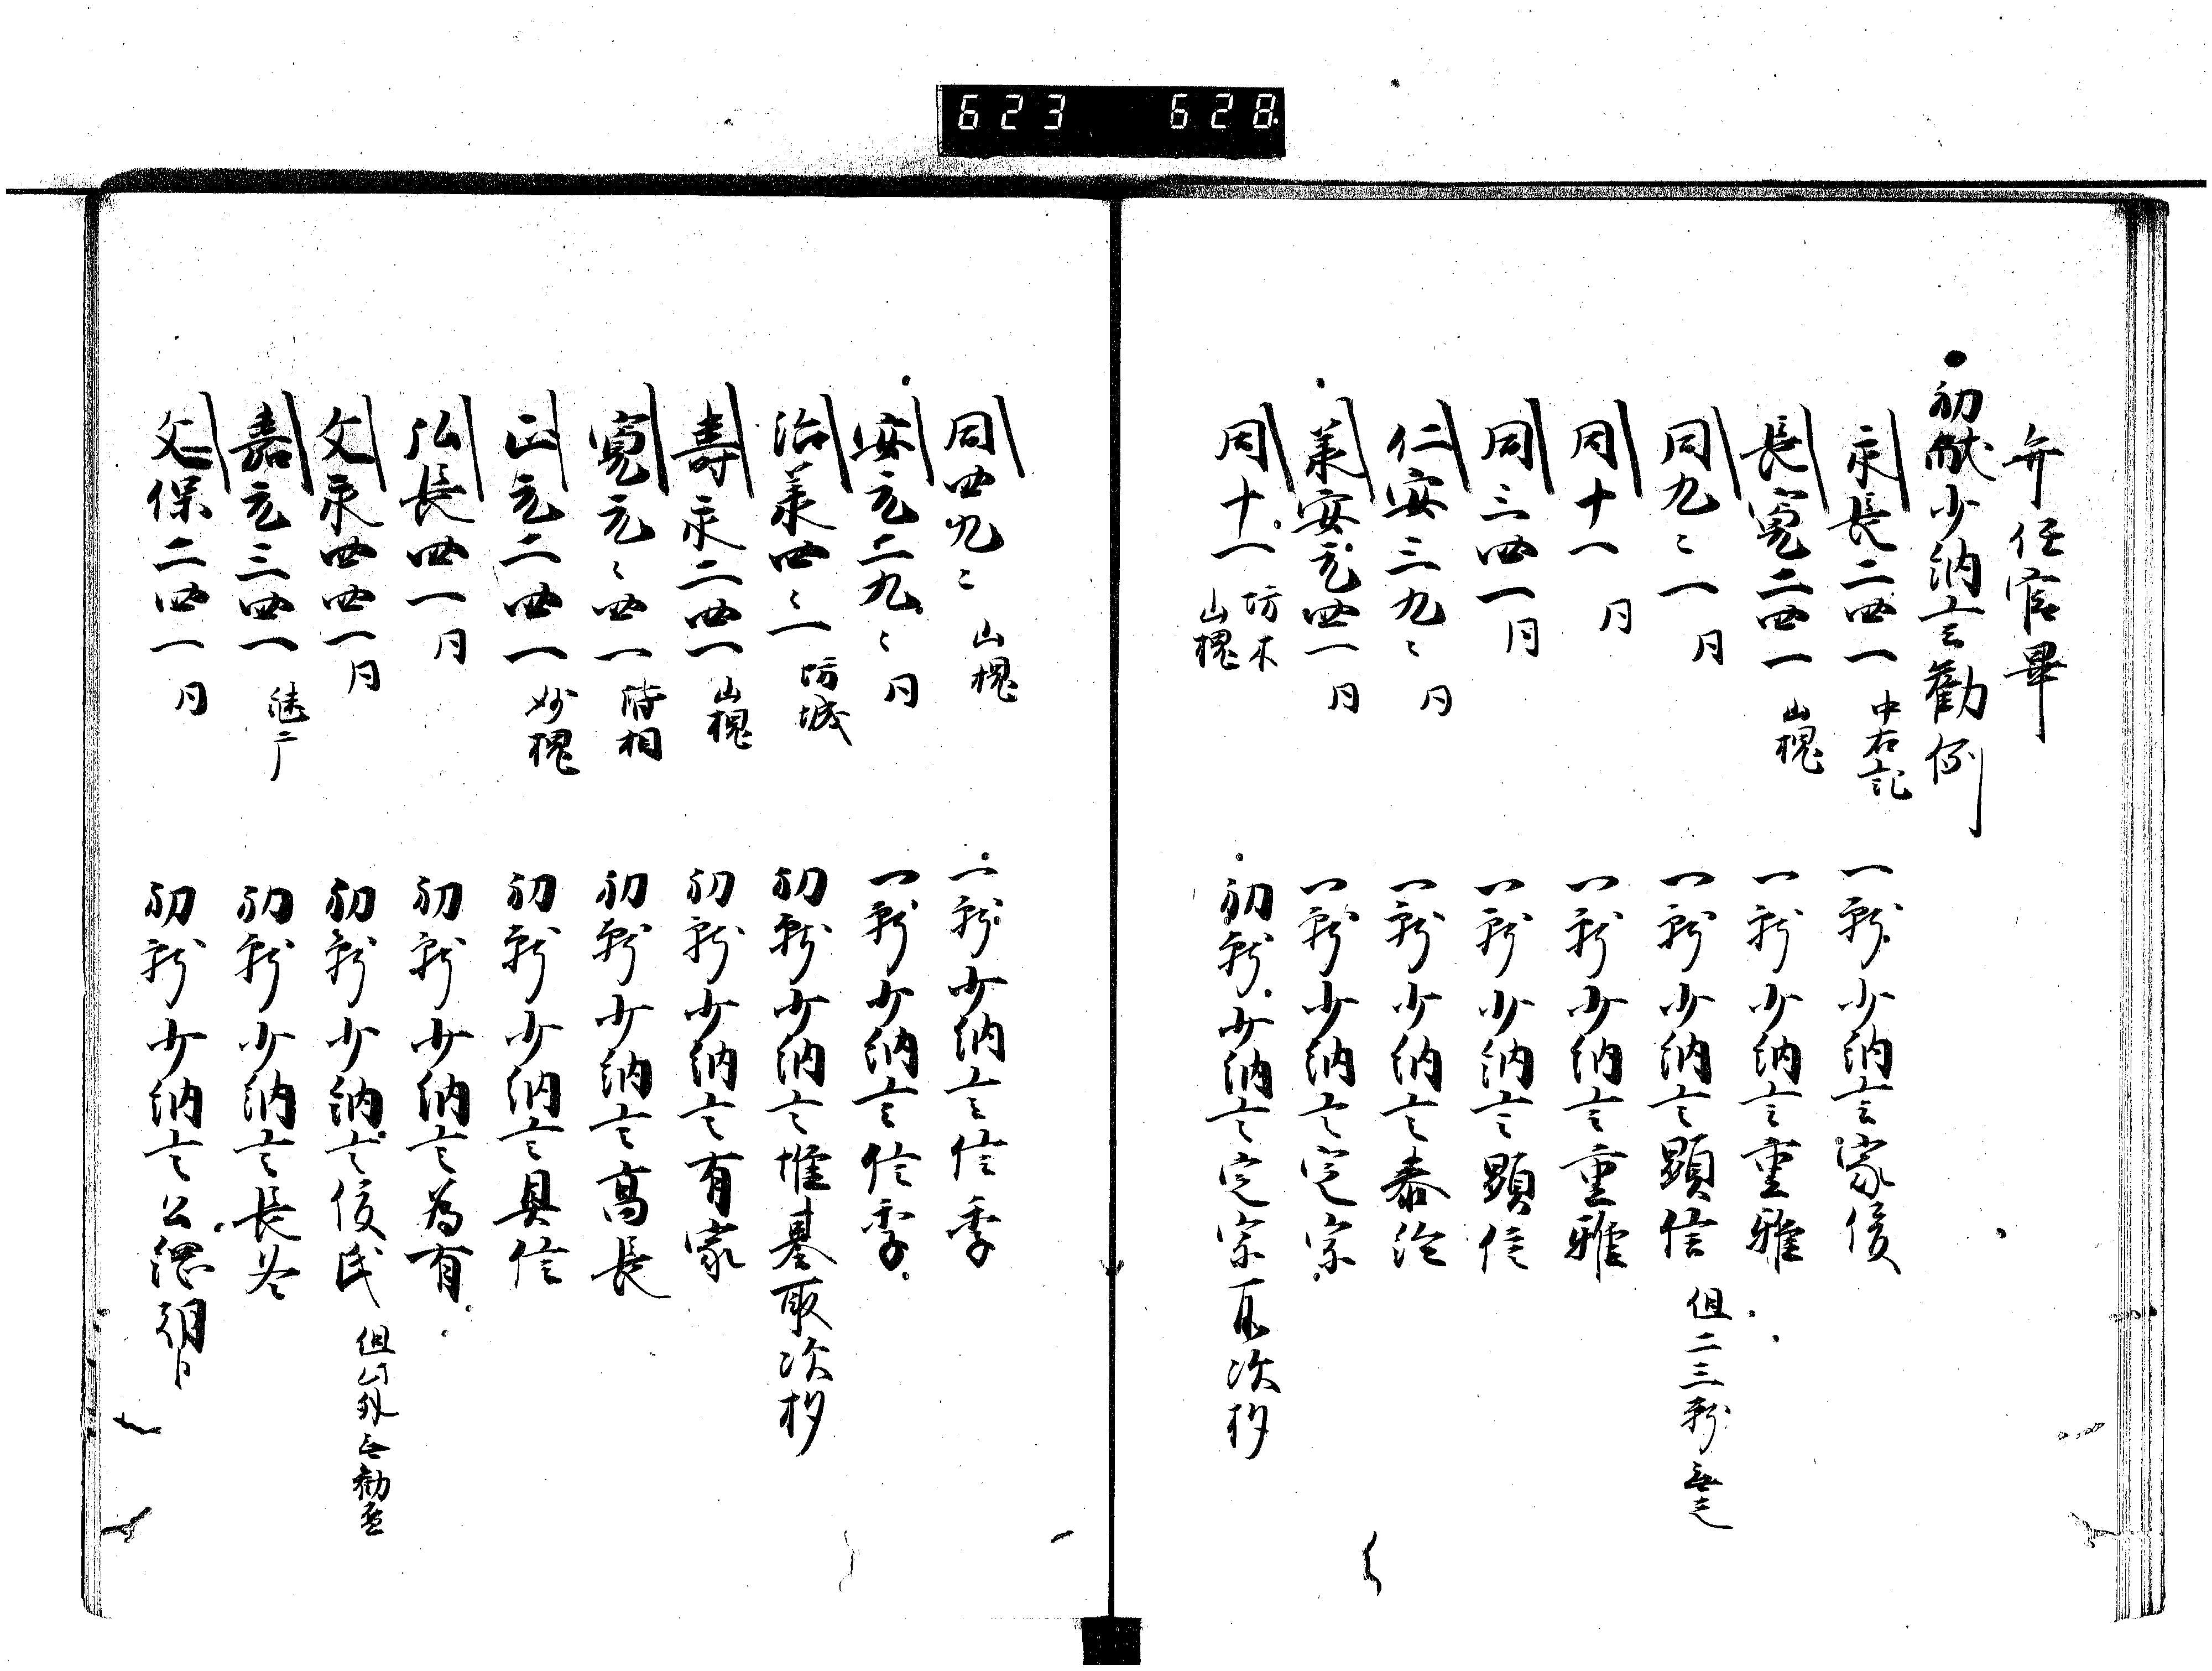 623 628
弁任官畢
初献少納言勧例
永長二四一 中右記 一献少納言家俊
長寛二四一 山槐 一献少納言重雅
同九ミ一 同 一献少納言顕信 但二三献無之
同十一 同 一献少納言重雅
同三四一 同 一献少納言顕信
仁安三九ミ 同 一献少納言泰経
承安元四一 同 一献少納言定宗
同十一 山槐 初献少納言定宗 取次杓
同四九ミ 山槐 一献少納言信季
安元二九ミ 同 一献少納言信季
治承四ミ一 坊城 初献少納言惟基取次杓
寿永二四一 山槐 初献少納言有家
寛元ミ四一 初献少納言高長
正元二四一 妙槐 初献少納言具信
弘長四一 同 初献少納言為有
文永四四一 同 初献少納言俊氏 但此外無勧盃
嘉元三四一 初献少納言長
文保二四一 同 初献少納言公